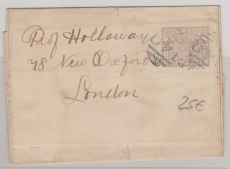 Prof Holloway
78 New Oxford
London
25€